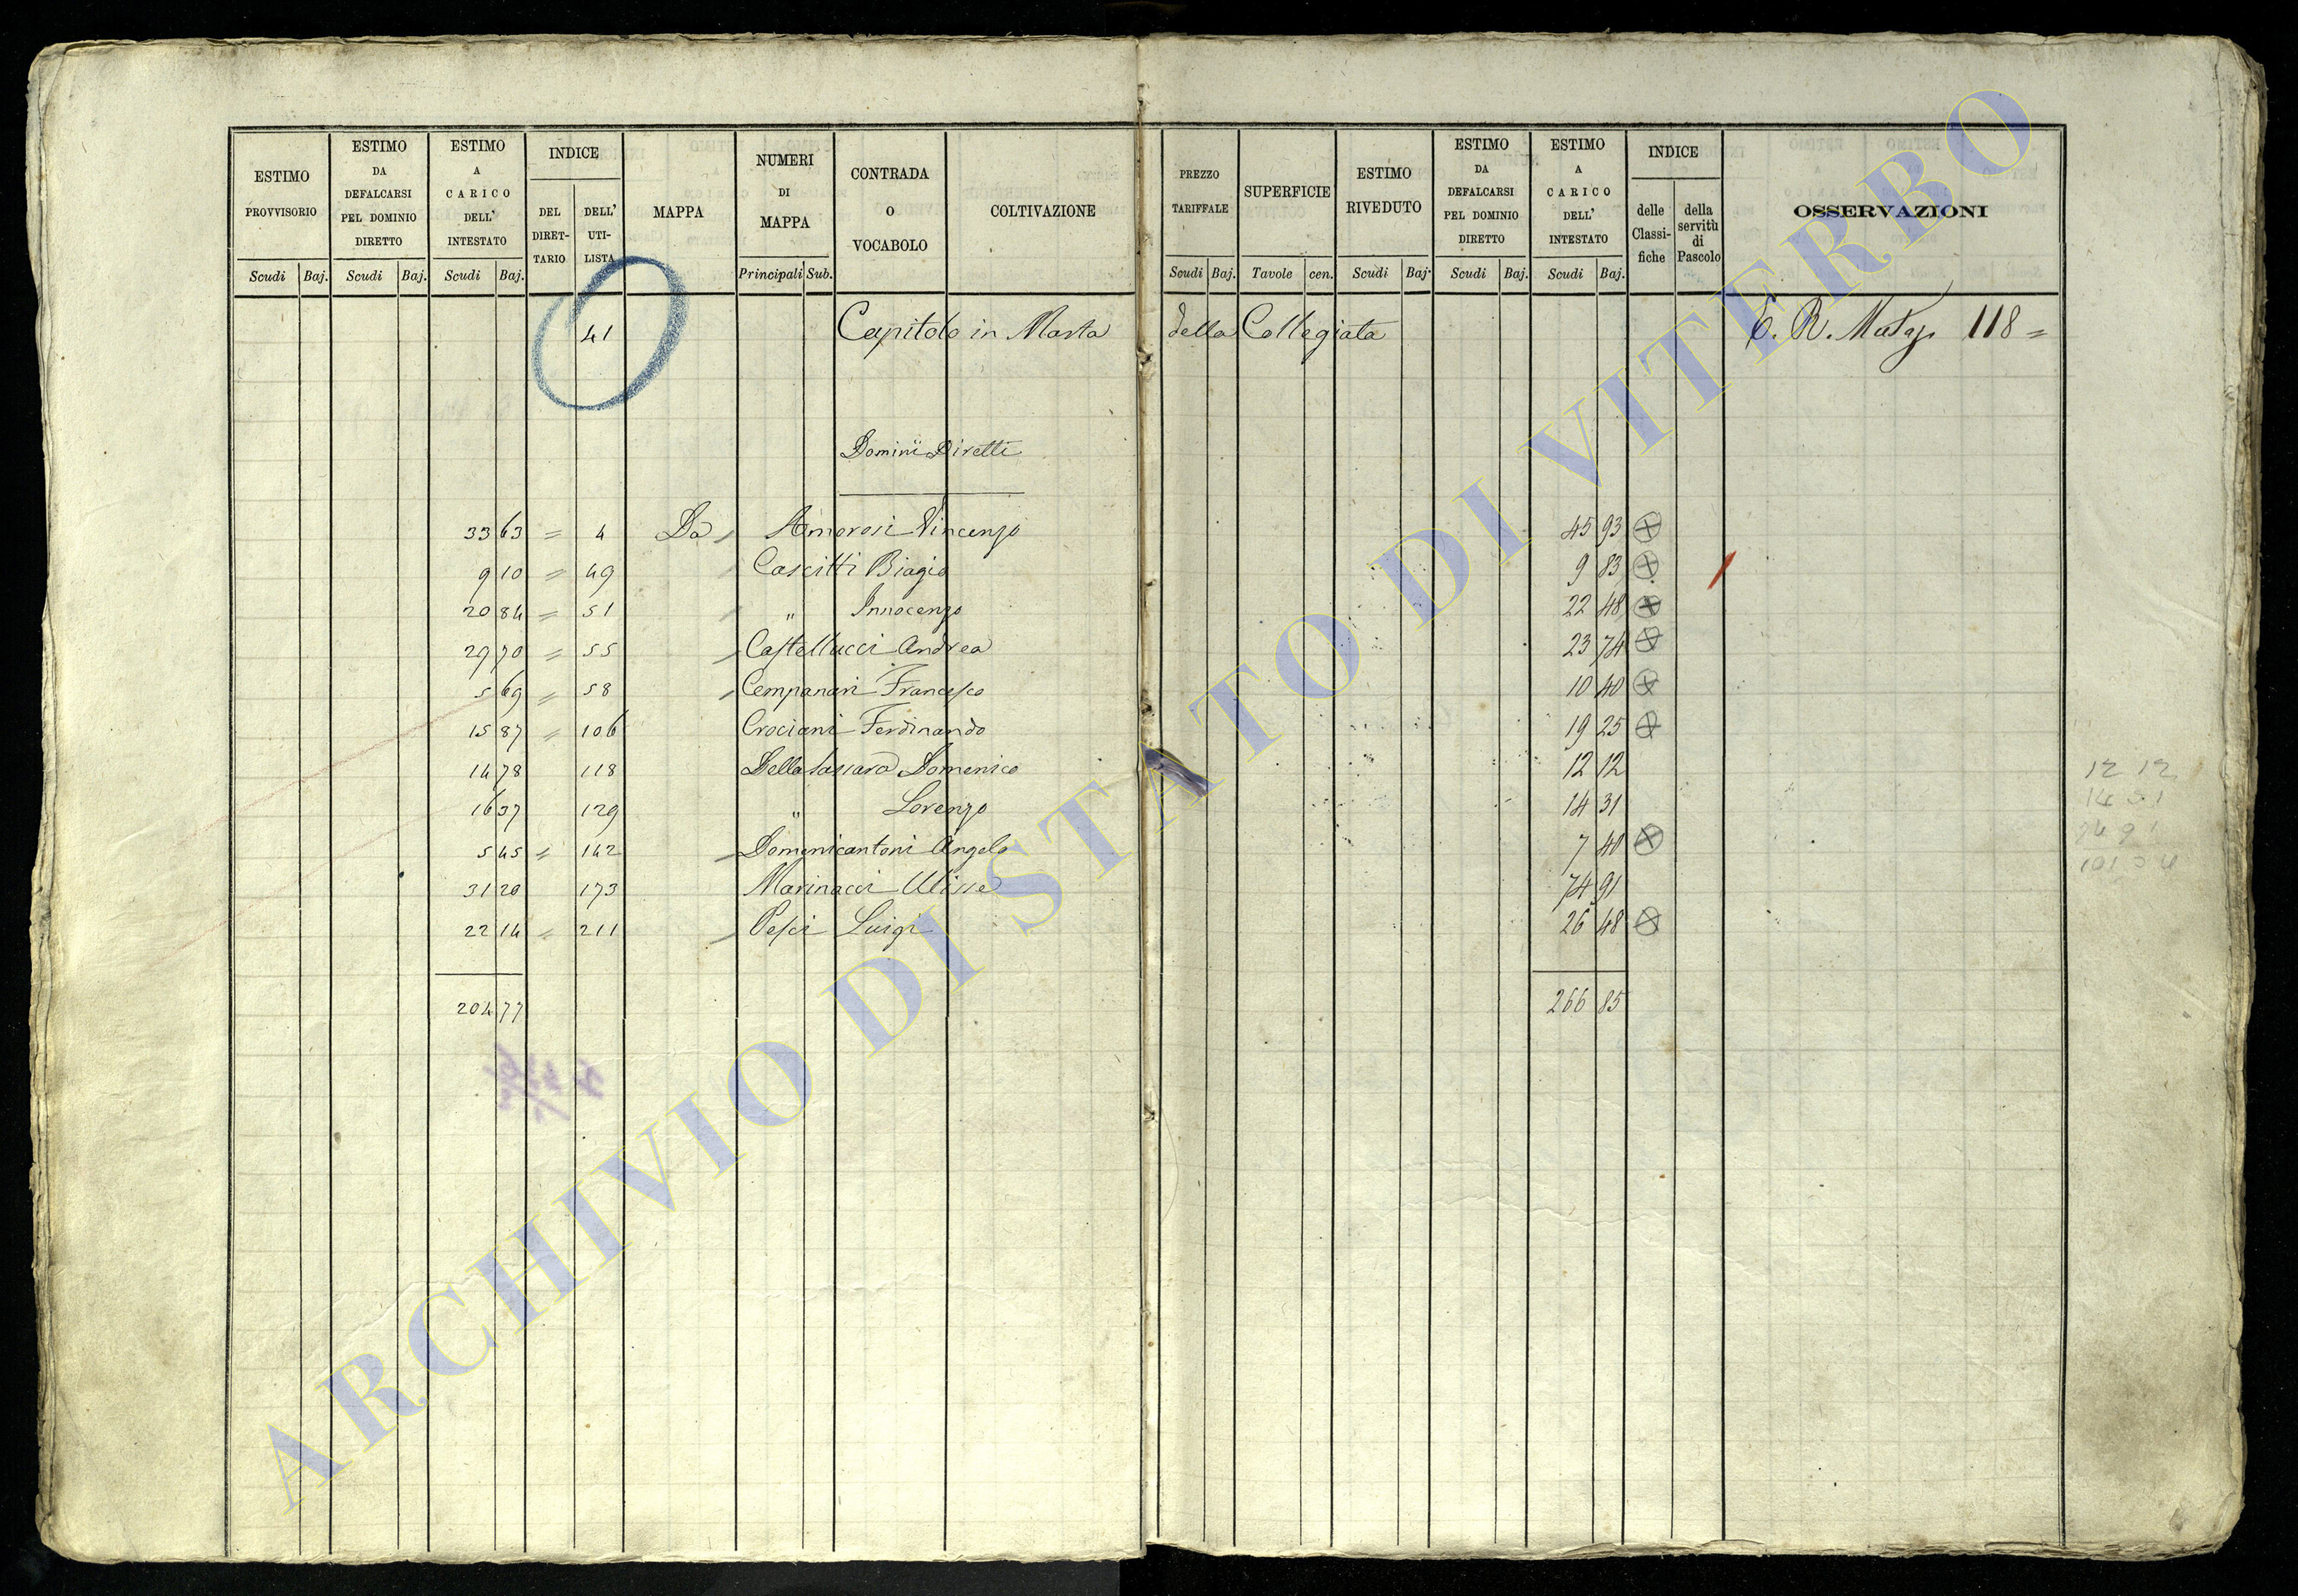 ESTIMO PROVVISORIO
Scudi Baj.
ESTIMO DA DEFALCARSI PEL DOMINIO DIRETTO
Scudi Baj.
ESTIMO A CARICO DELL' INTESTATO
Scudi Baj.
INDICE
DEL DIRET-TARIO
DELL' UTI-LISTA
MAPPA
NUMERI DI MAPPA
Principali Sub.
CONTRADA O VOCABOLO
COLTIVAZIONE
PREZZO TARIFFALE
Scudi Baj.
SUPERFICIE
Tavole cen.
ESTIMO RIVEDUTO
Scudi Baj.
ESTIMO DA DEFALCARSI PEL DOMINIO DIRETTO
Scudi Baj.
ESTIMO A CARICO DELL' INTESTATO
Scudi Baj.
INDICE
delle Classi-fiche
della servitù di Pascolo
OSSERVAZIONI
41 Capitolo in Marta della Collegiata E. R. 118 =
Dominii Diretti
33 63 = 4 Da Amorosi Vincenzo 45 93
9 10 = 49 Cascitti Biagio 9 83
20 84 = 51 " Innocenzo 22 48
29 70 = 55 Castellucci Andrea 23 74
5 69 = 58 Campanari Francesco 10 40
15 87 = 106 Crociani Ferdinando 19 25
14 78 118 Domenico 12 12
16 37 129 " Lorenzo 14 31
5 45 = 142 Domenicantoni Angelo 7 40
31 20 173 Marinacci Ulisse 74 91
22 14 = 211 Pesci Luigi 26 48
204 77 266 85
12 12
14 31
74 91
ARCHIVIO DI STATO DI VITERBO